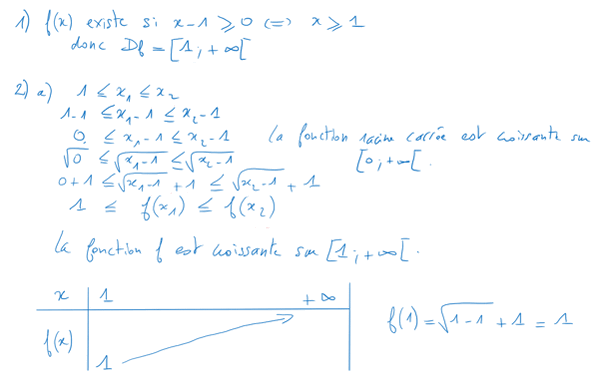 1) f(x) existe si x-1 ⩾ 0 (=) x ⩾ 1
donc Df = [1 ; +∞[
2) a) 1 ≤ x₁ ≤ x₂
1-1 ≤ x₁-1 ≤ x₂-1
0 ≤ x₁-1 ≤ x₂-1 La fonction racine carrée est croissante sur
√0 ≤ √(x₁-1) ≤ √(x₂-1) [0 ; +∞[.
0+1 ≤ √(x₁-1) + 1 ≤ √(x₂-1) + 1
1 ≤ f(x₁) ≤ f(x₂)
La fonction f est croissante sur [1 ; +∞[.
x 1 +∞
f(x) 1
f(1) = √(1-1) + 1 = 1